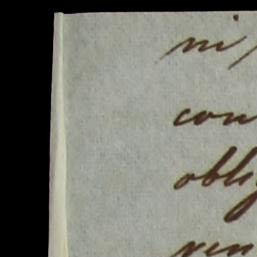 ni
con
obli
ven